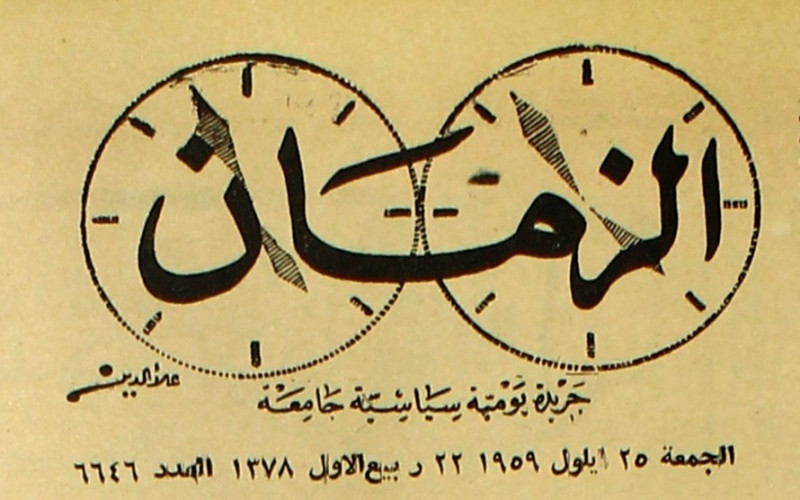 الزمان
علاء الدين
جَرْيدة يَوْميّة سِيَاسِيّة جَامِعَة
الجمعة ٢٥ ايلول ١٩٥٩ ٢٢ ربيع الاول ١٣٧٨ العدد ٦٦٤٦